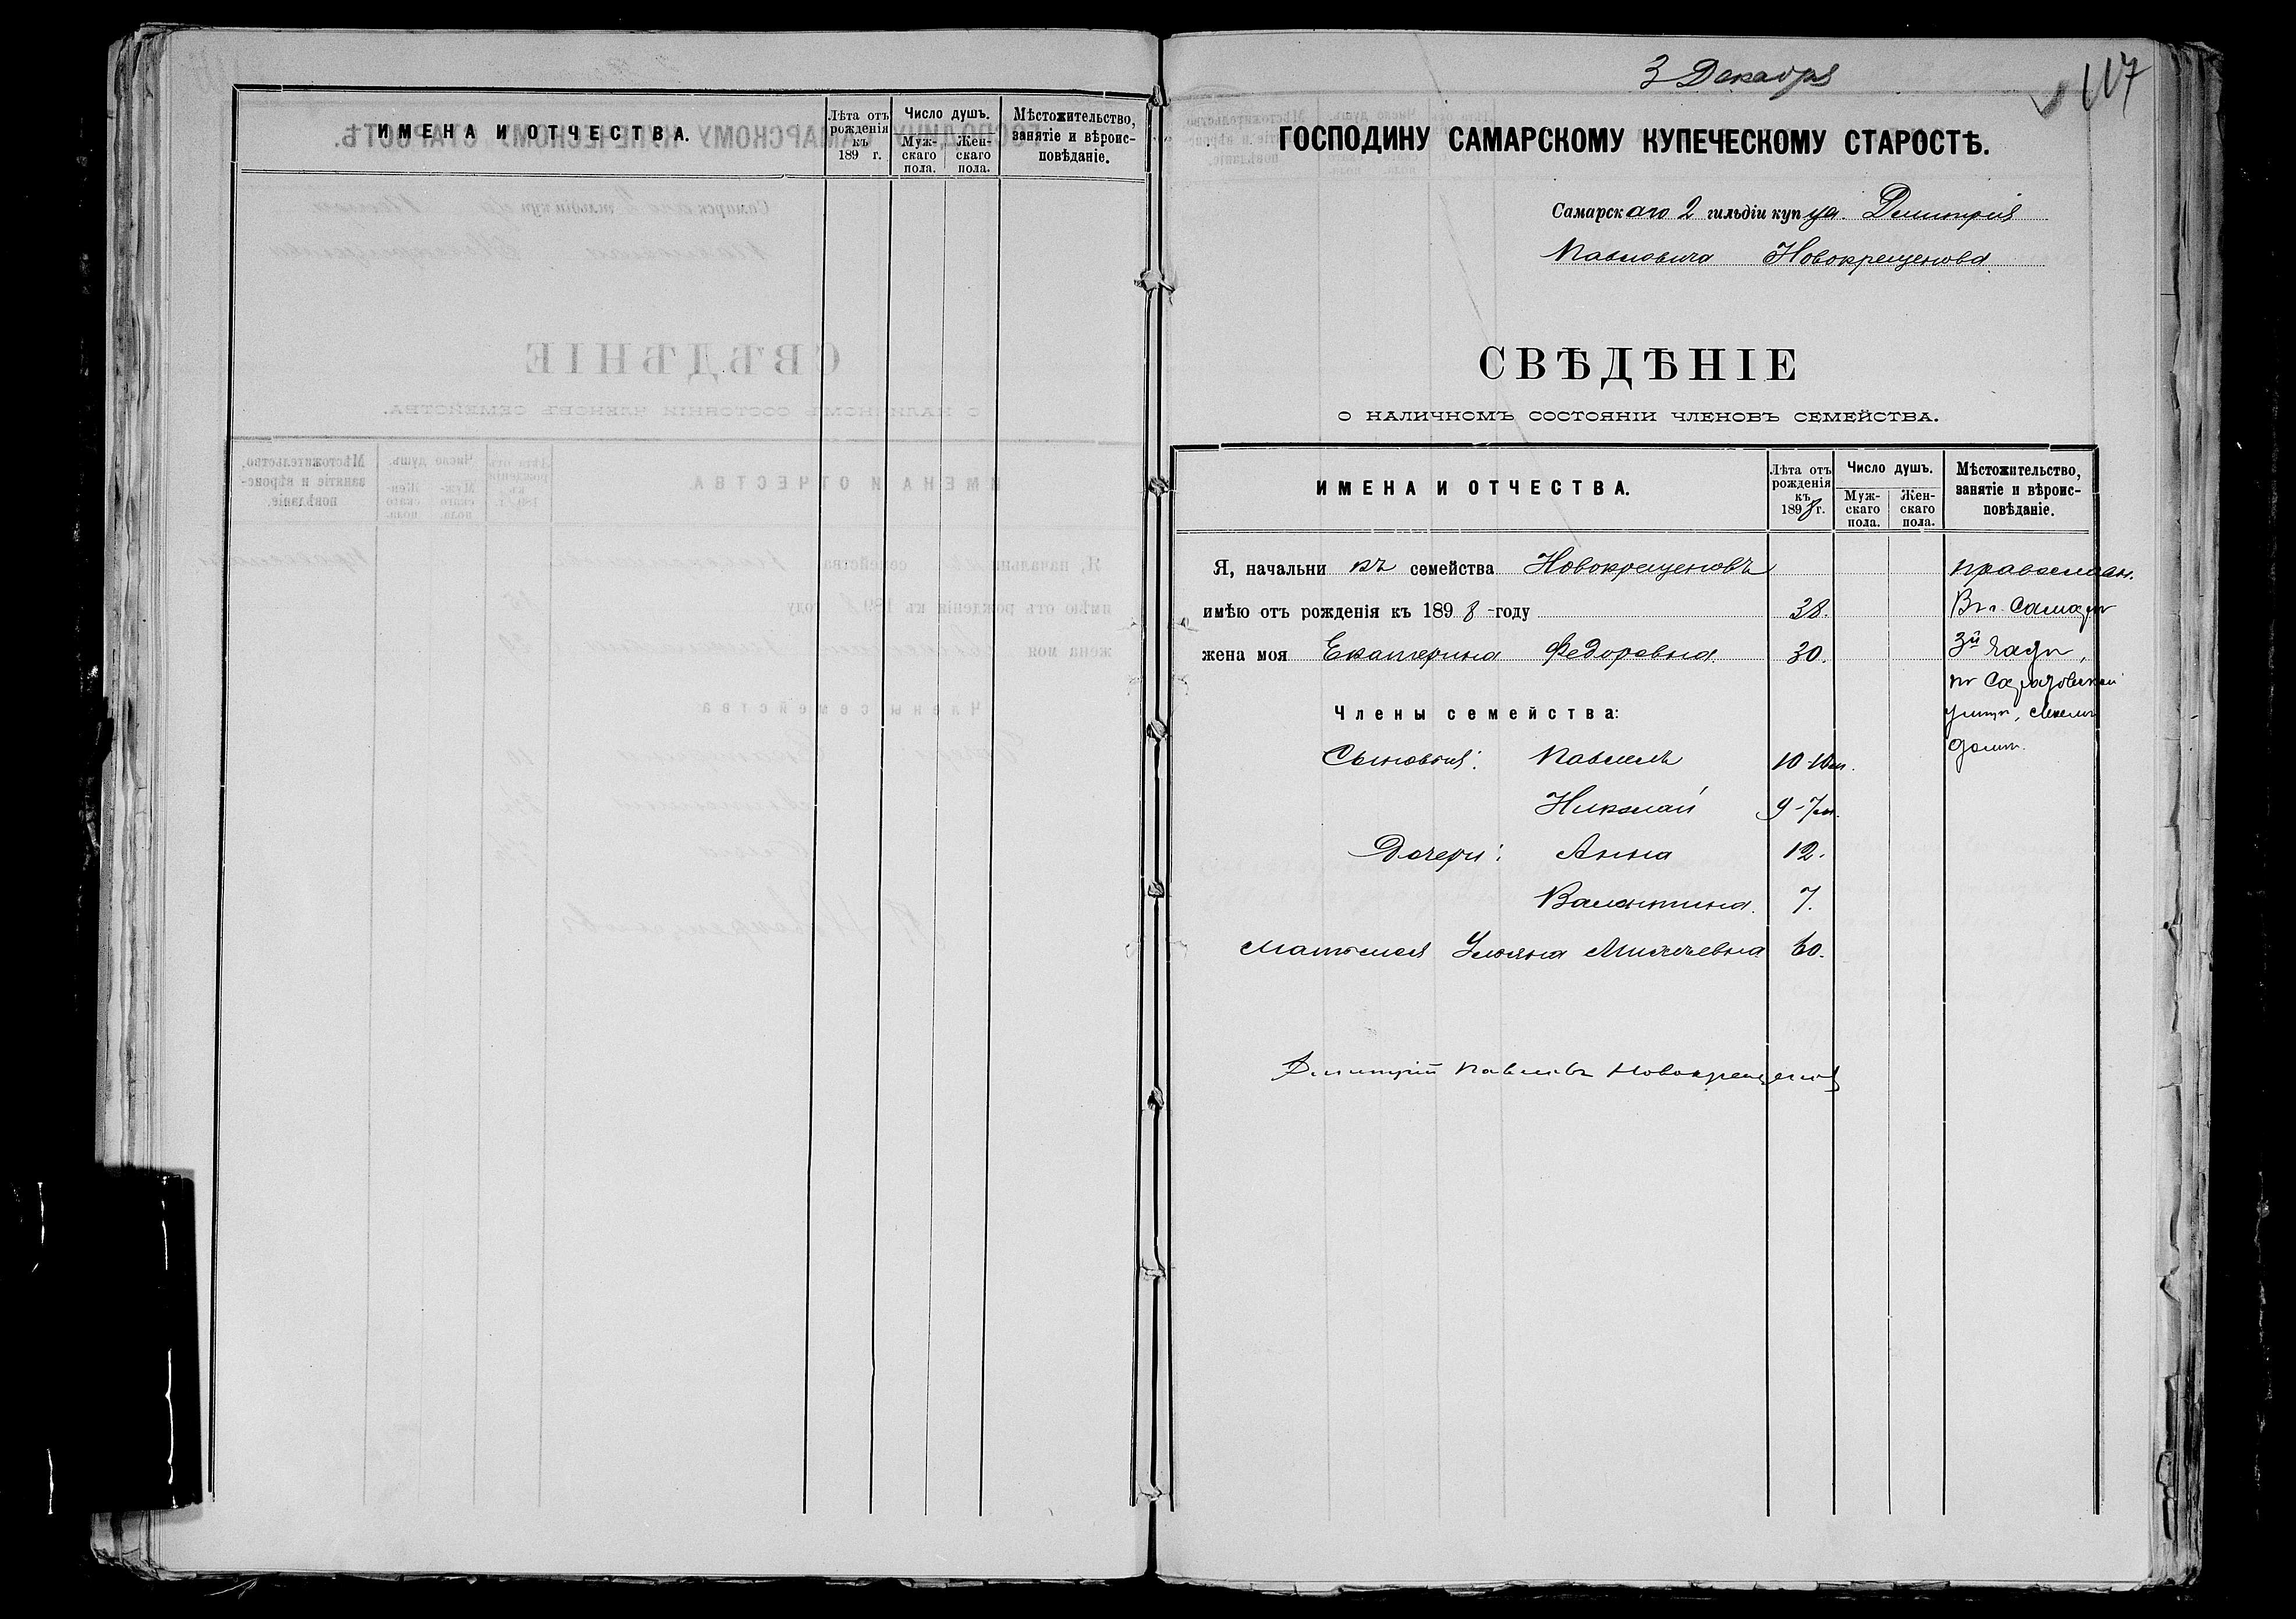 ИМЕНА И ОТЧЕСТВА.
Лѣта отъ рожденія къ 189 г.
Число душъ.
Мужскаго пола.
Женскаго пола.
Мѣстожительство, занятіе и вѣроисповѣданіе.
3 Декабря
117
ГОСПОДИНУ САМАРСКОМУ КУПЕЧЕСКОМУ СТАРОСТѢ.
Самарскаго 2 гильдіи купца Димитрія
Павловича Новокрещенова
СВѢДѢНІЕ
О НАЛИЧНОМЪ СОСТОЯНІИ ЧЛЕНОВЪ СЕМЕЙСТВА.
ИМЕНА И ОТЧЕСТВА.
Лѣта отъ рожденія къ 1898 г.
Число душъ.
Мужскаго пола.
Женскаго пола.
Мѣстожительство, занятіе и вѣроисповѣданіе.
Я, начальникъ семейства Новокрещеновъ
православн.
имѣю отъ рожденія къ 1898-году 38.
Въ г. Самарѣ
жена моя Екатерина Федоровна 30.
3й части,
по Саратовской
Члены семейства:
улицѣ,
домѣ.
Сыновья: Павелъ 10-10м.
Николай 9-7м.
Дочери: Анна 12.
Валентина. 7.
Мать моя Ульяна Михеевна 60.
Димитрій Павловъ Новокрещеновъ